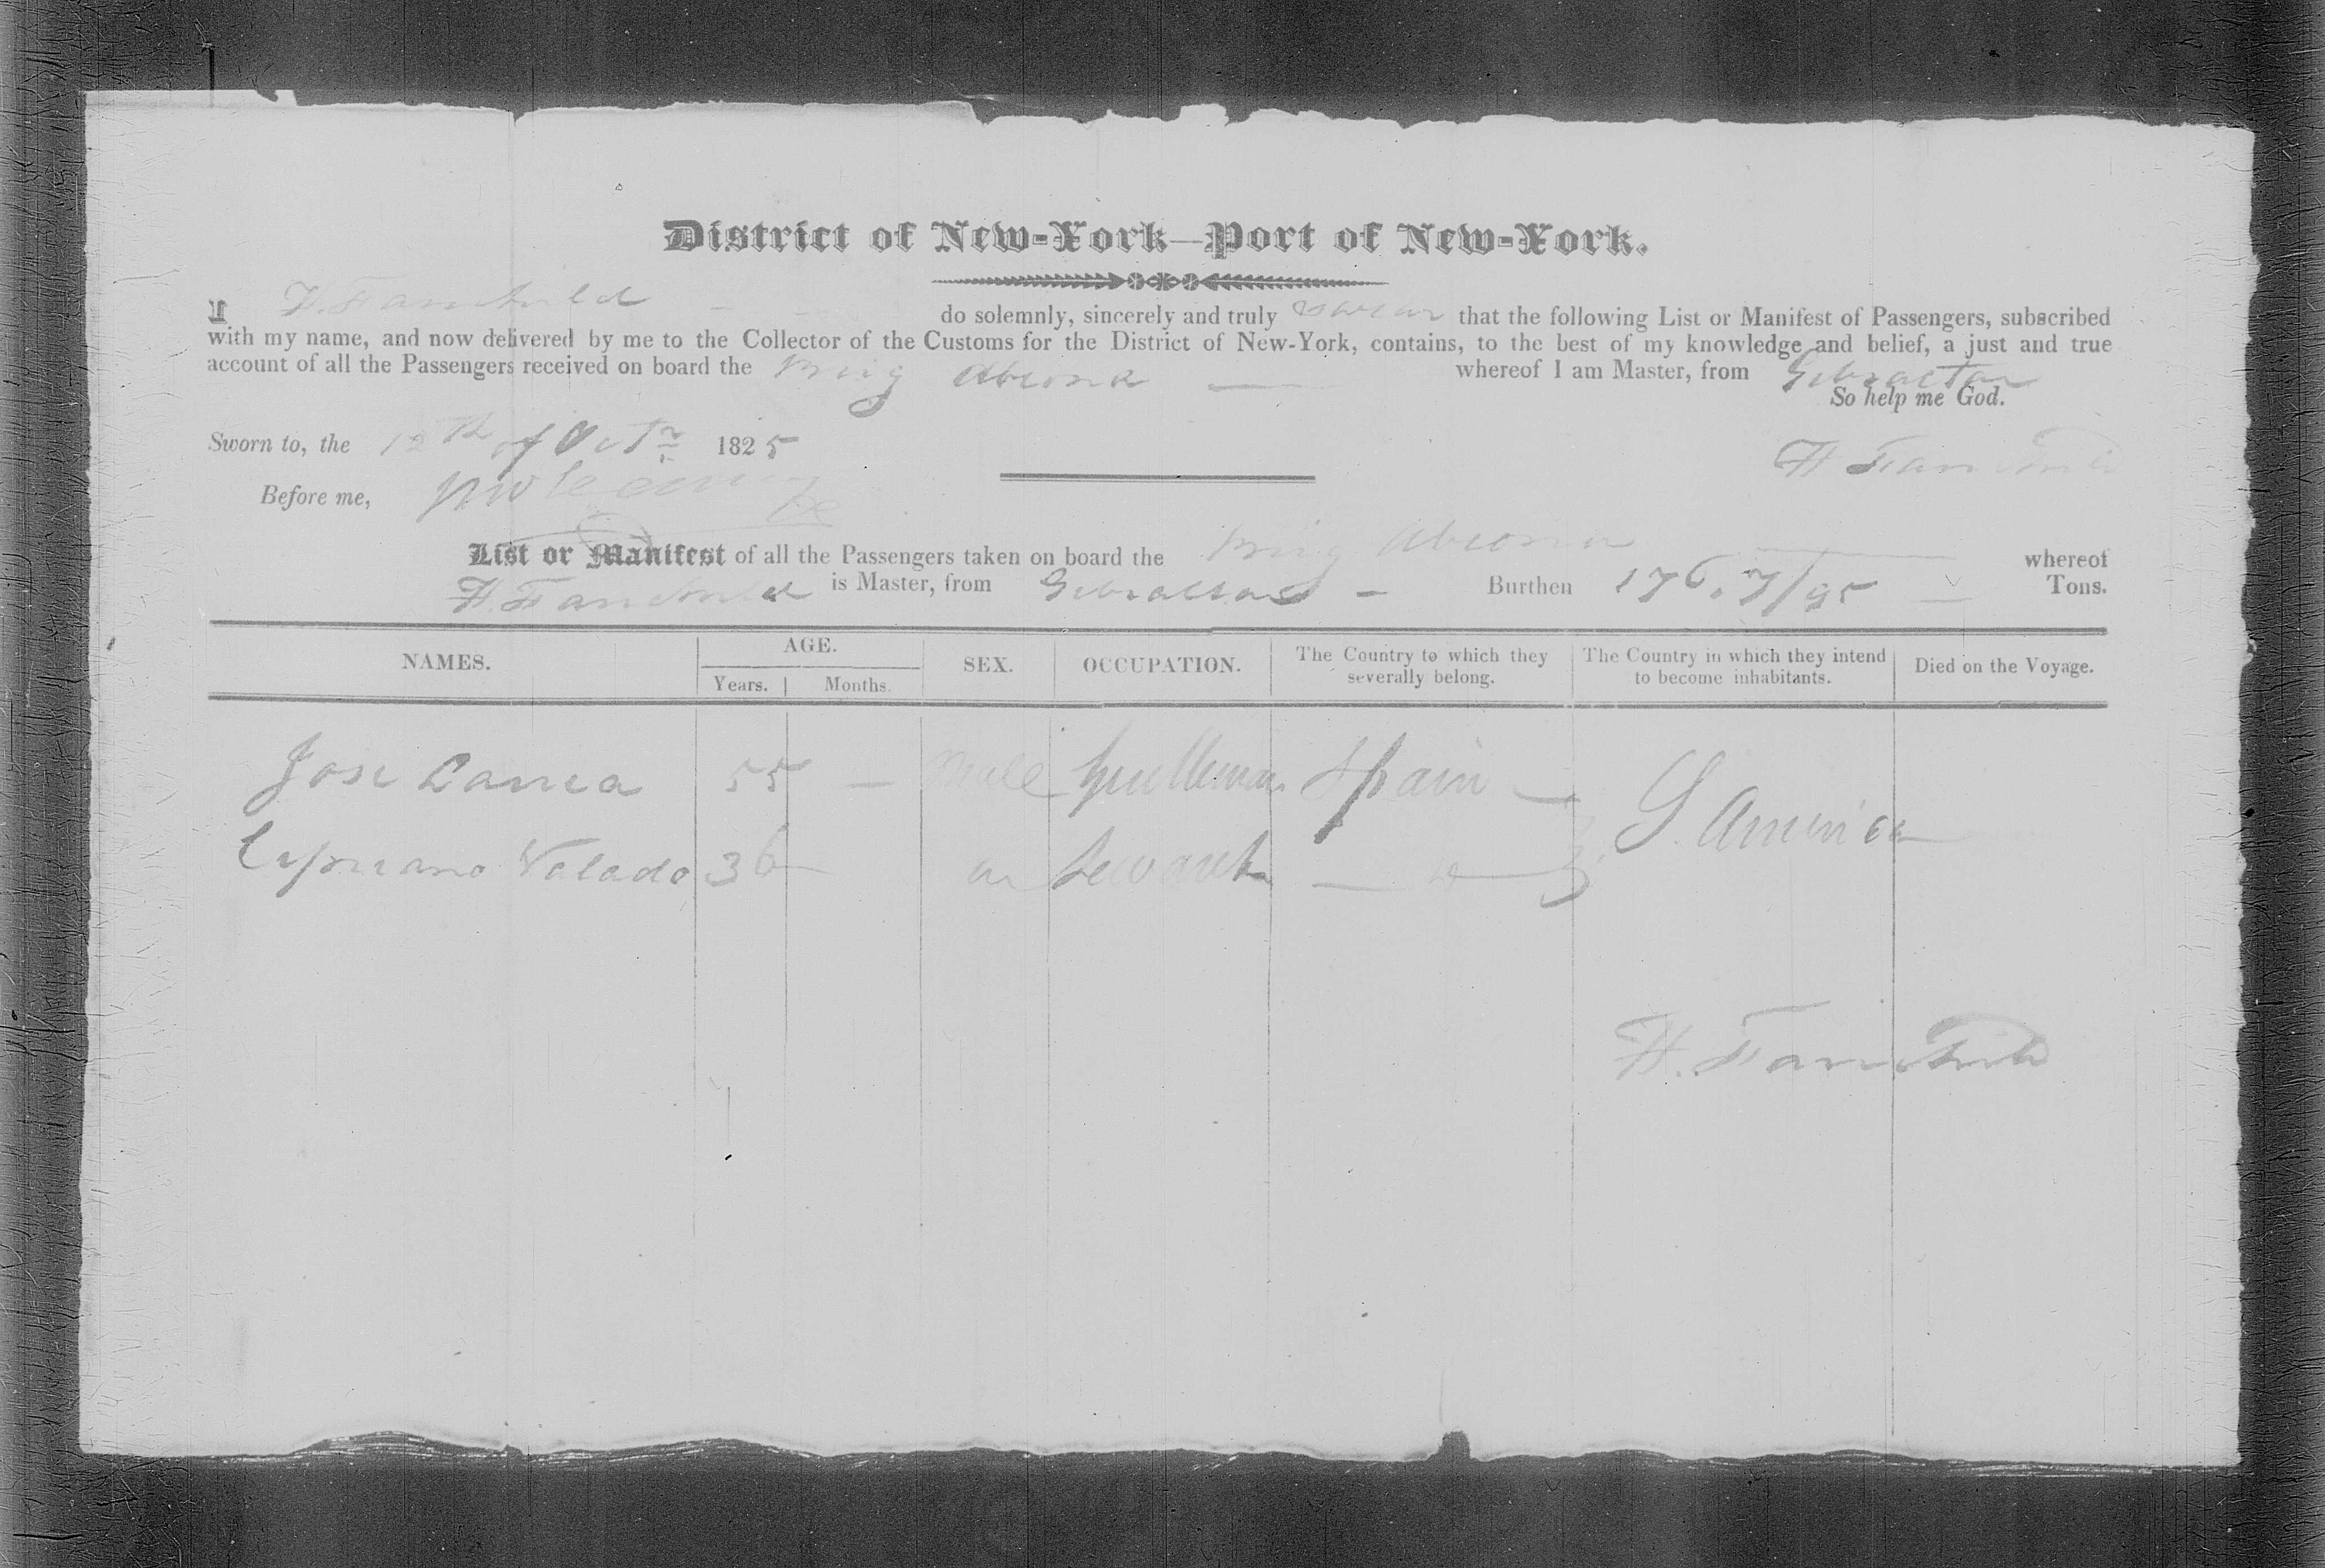 District of New-York—Port of New-York.
I H. Fairchild — do solemnly, sincerely and truly swear that the following List or Manifest of Passengers, subscribed
with my name, and now delivered by me to the Collector of the Customs for the District of New-York, contains, to the best of my knowledge and belief, a just and true
account of all the Passengers received on board the Brig Abeona — whereof I am Master, from Gibraltar
So help me God.
Sworn to, the 12th of Octr 1825
H Fairchild
Before me,
List or Manifest of all the Passengers taken on board the Brig Abeona — whereof
H. Fairchild is Master, from Gibraltar — Burthen 176.7/95 — Tons.
NAMES. AGE. SEX. OCCUPATION. The Country to which they severally belong. The Country in which they intend to become inhabitants. Died on the Voyage.
Years. Months.
Jose 55 — Male Gentleman Spain — S. America
Cipriano 36 — Servant —
H. Fairchild